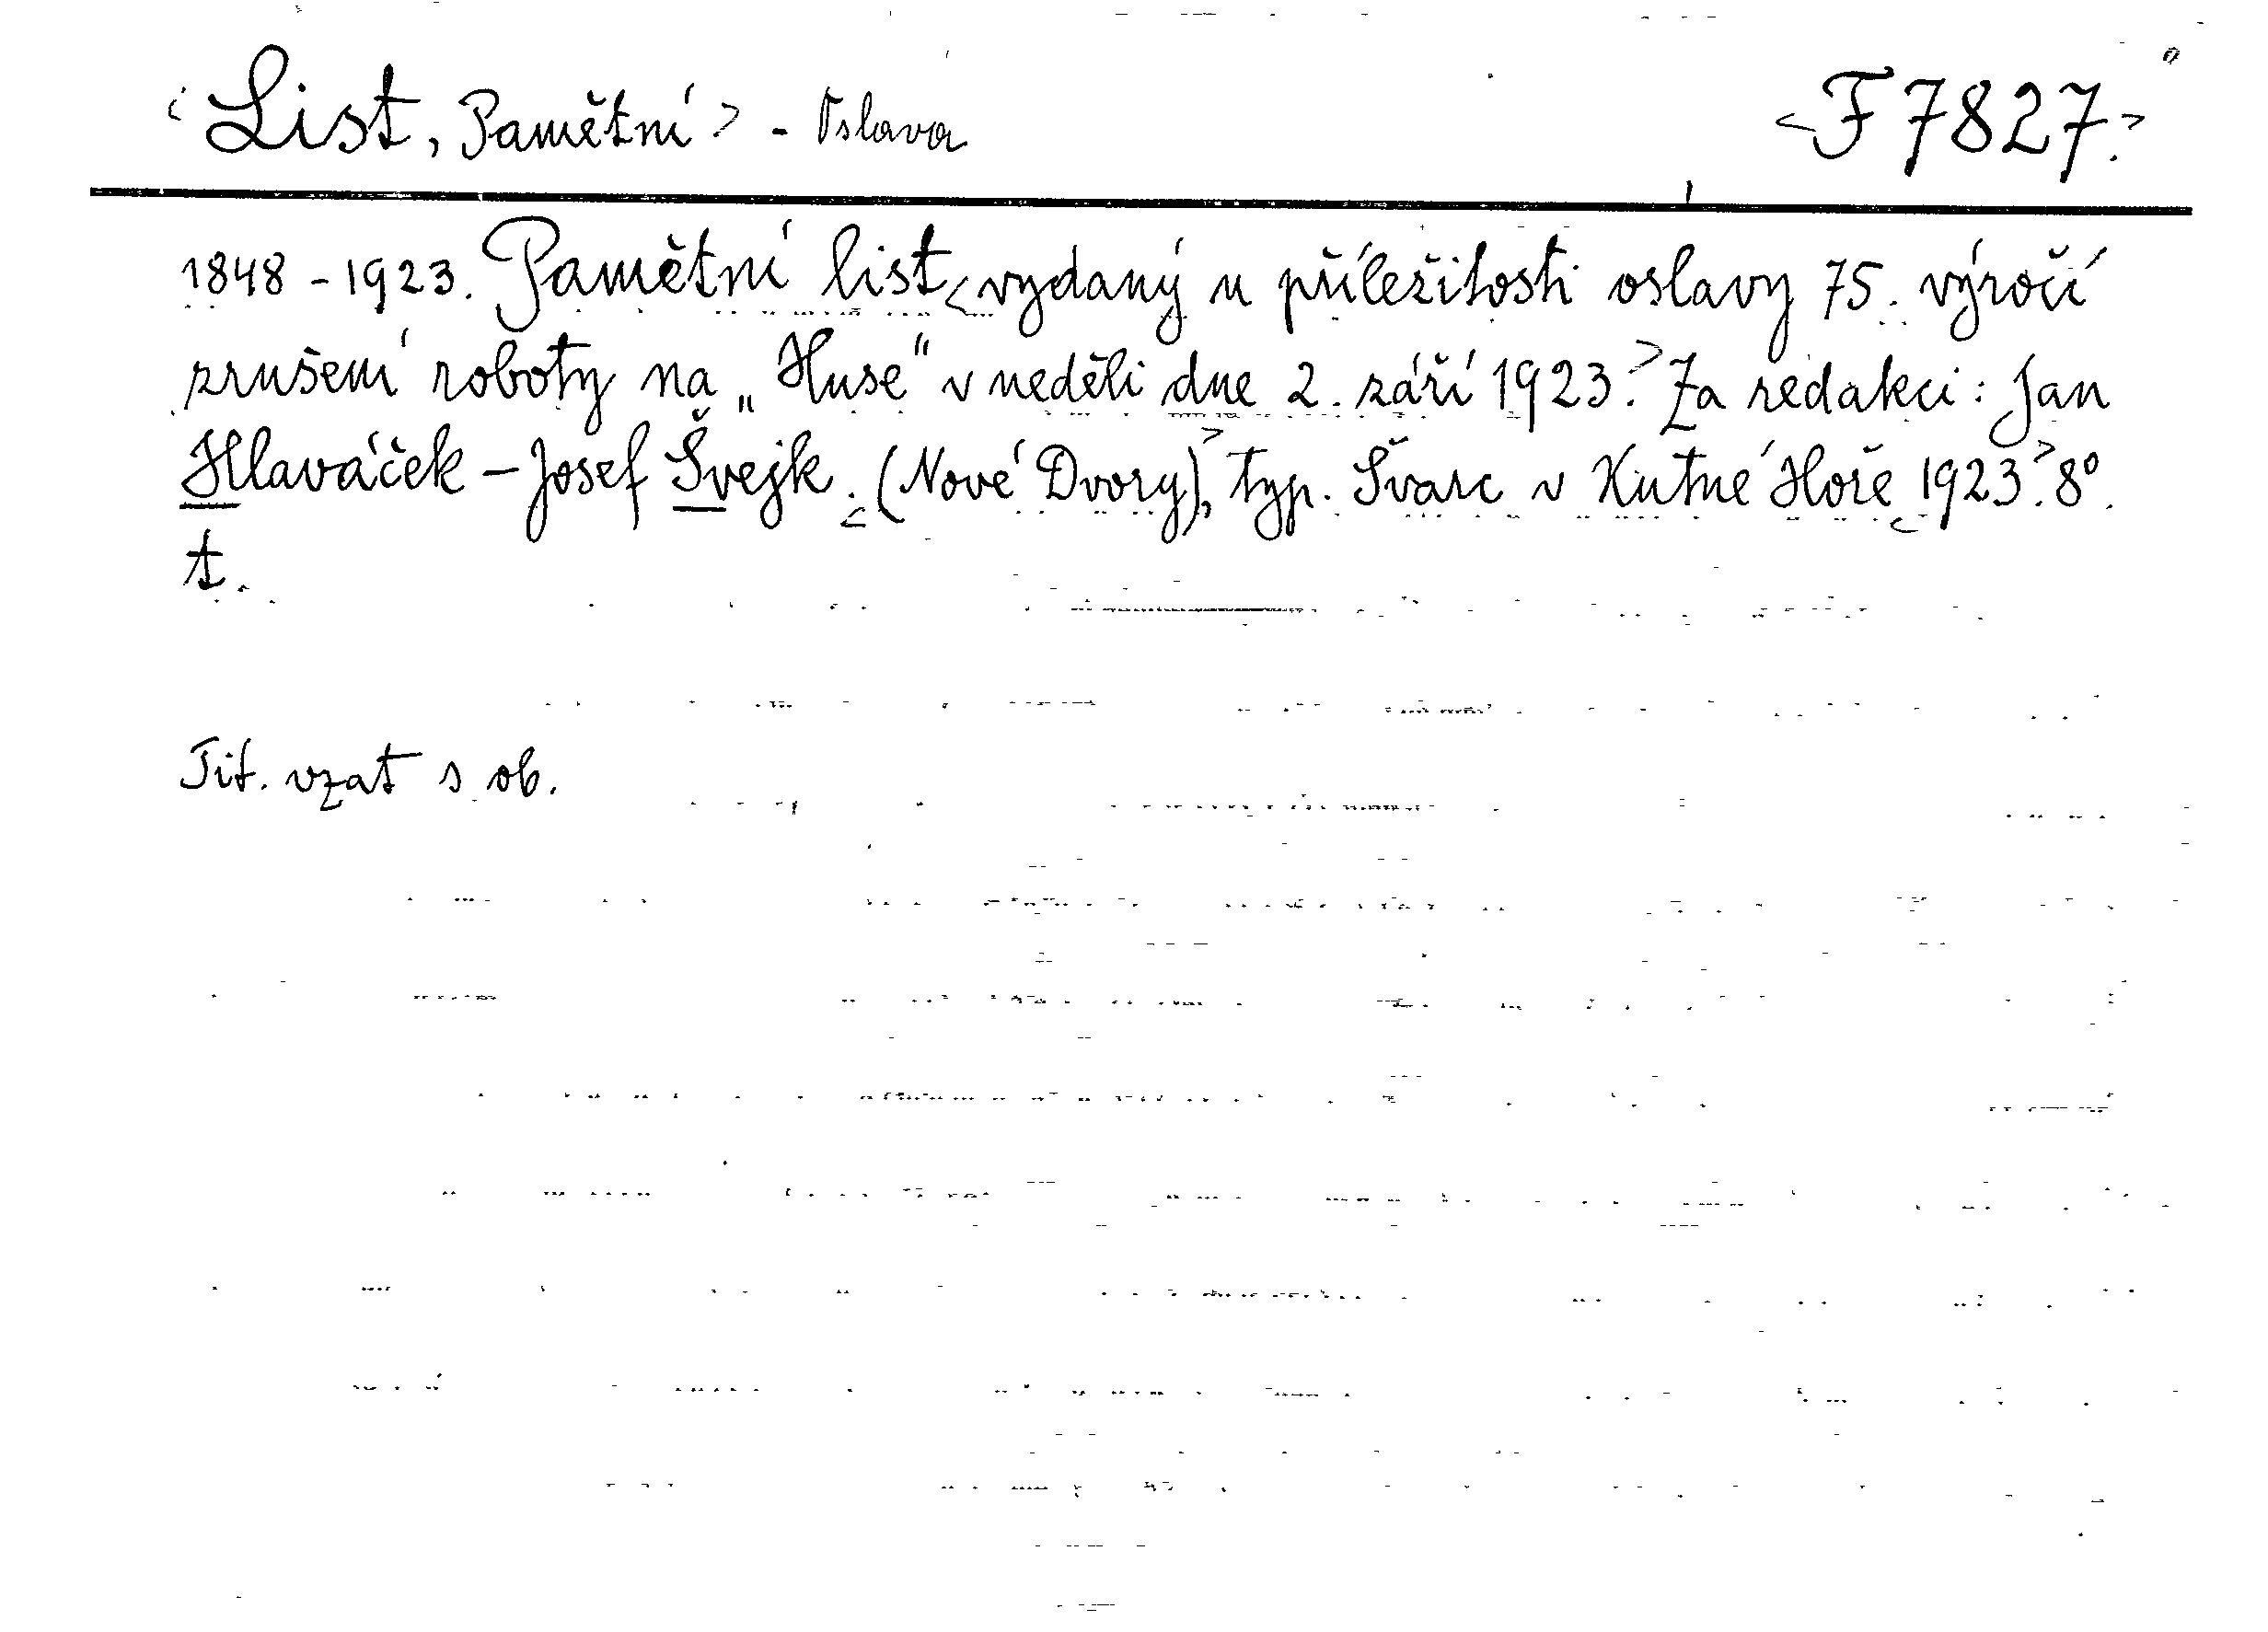 <List, Pamětní> - Oslava <F 7827.>
1848 - 1923. Pamětní list <vydaný u příležitosti oslavy 75. výročí
zrušení roboty na „Huse“ v neděli dne 2. září 1923.> Za redakci: Jan
Hlaváček - Josef Švejk. <(Nové Dvory)>, typ. Švarc v Kutné Hoře <1923>. 8°.
t.
Tit. vzat s ob.